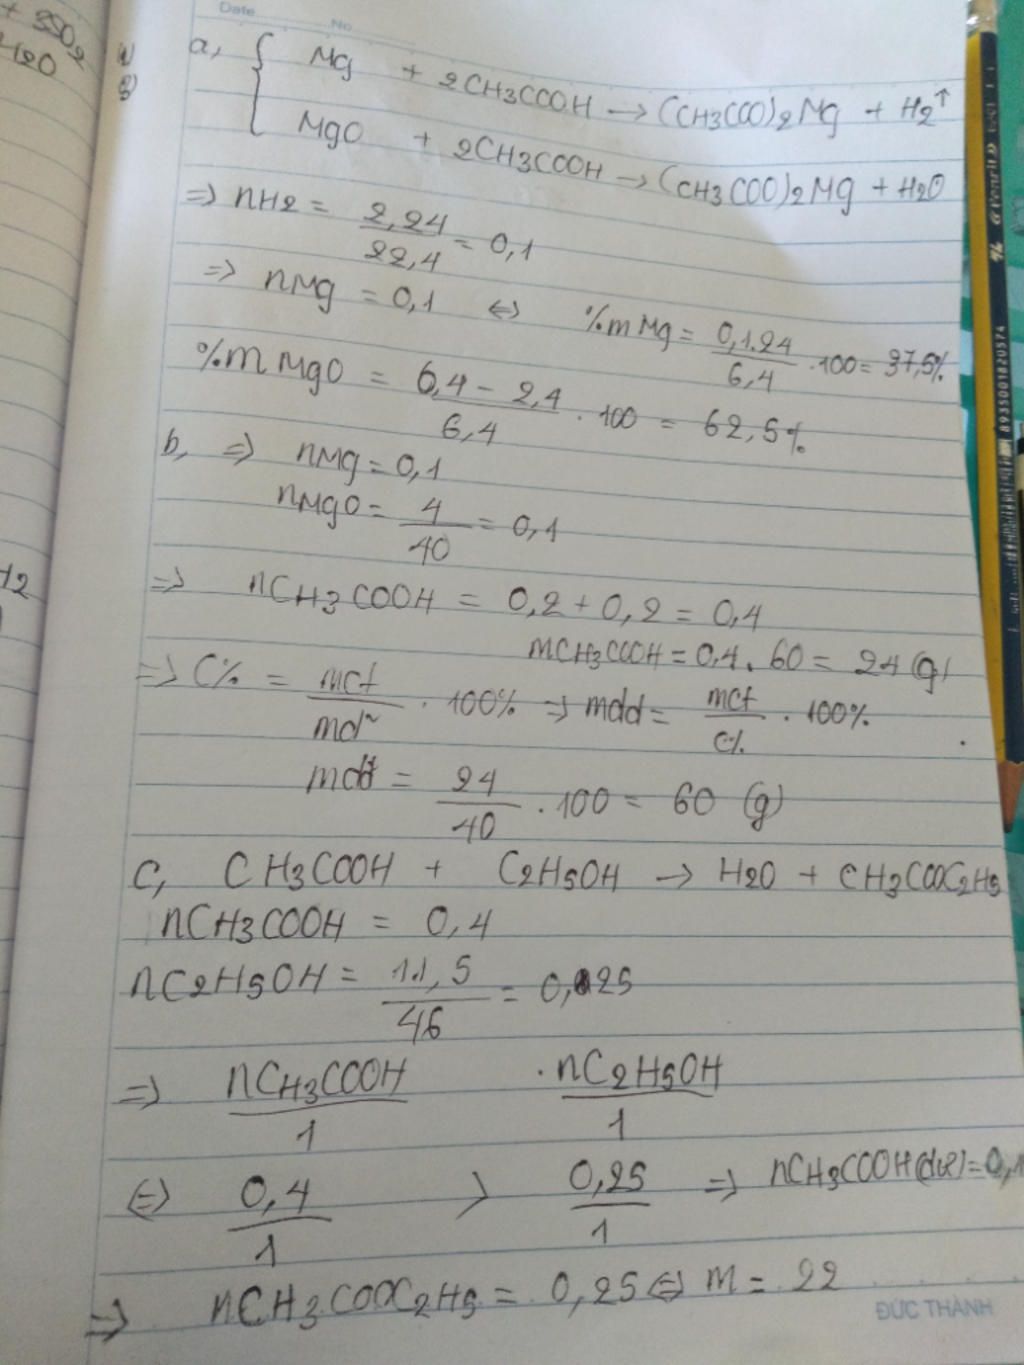 + 3SO2
H2O
Date No
a, { Mg + 2CH3COOH → (CH3COO)2Mg + H2↑
MgO + 2CH3COOH → (CH3COO)2Mg + H2O
=> nH2 = 2,24 / 22,4 = 0,1
=> nMg = 0,1 <=> %mMg = 0,1.24 / 6,4 . 100 = 37,5%
%mMgO = 6,4 - 2,4 / 6,4 . 100 = 62,5%
b, => nMg = 0,1
nMgO = 4 / 40 = 0,1
=> nCH3COOH = 0,2 + 0,2 = 0,4
mCH3COOH = 0,4 . 60 = 24 (g)
=> C% = mct / md² . 100% => mdd = mct / C% . 100%
mdd = 24 / 40 . 100 = 60 (g)
c, CH3COOH + C2H5OH → H2O + CH3COOC2H5
nCH3COOH = 0,4
nC2H5OH = 11,5 / 46 = 0,25
=> nCH3COOH / 1 . nC2H5OH / 1
<=> 0,4 / 1 > 0,25 / 1 => nCH3COOH(dư) = 0,1
=> nCH3COOC2H5 = 0,25 <=> m = 22
ĐỨC THÀNH
8935001820574